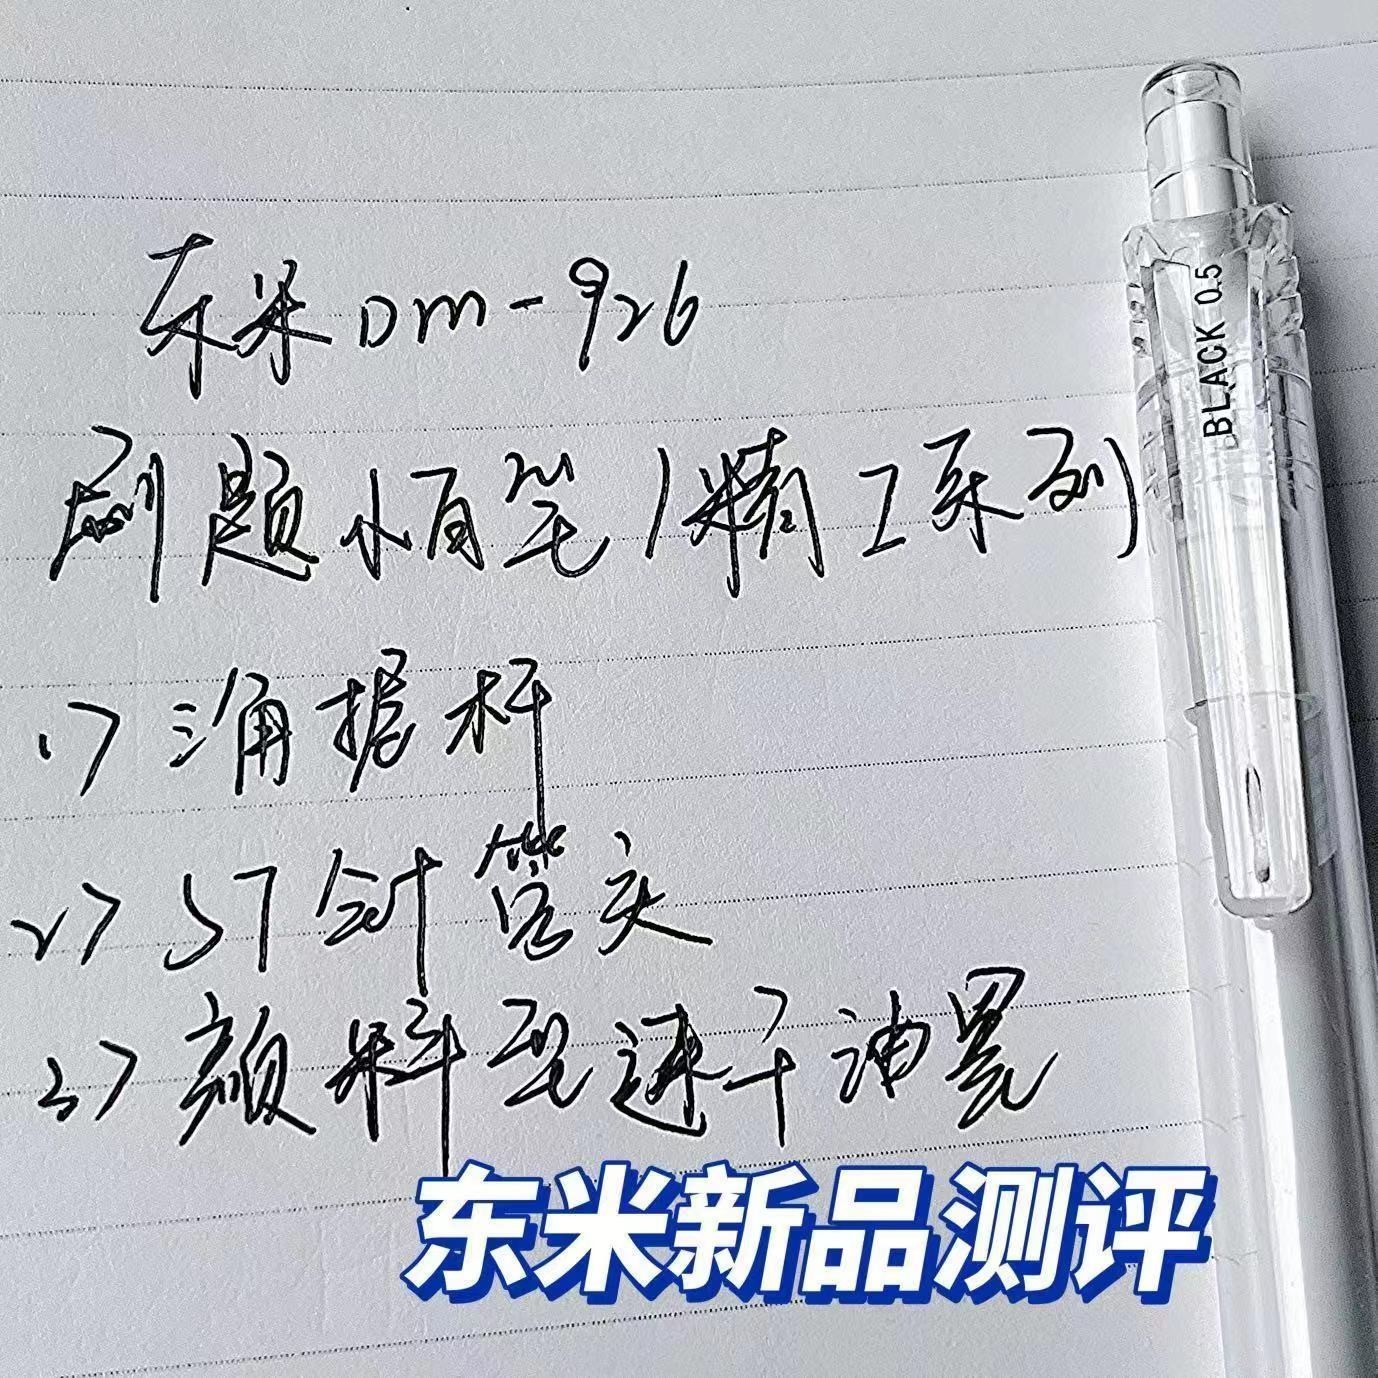 东米DM-926
刷题小百笔(精工系列)
1> 三角握杆
2> ST针管头
3> 颜料型速干油墨
BLACK 0.5
东米新品测评